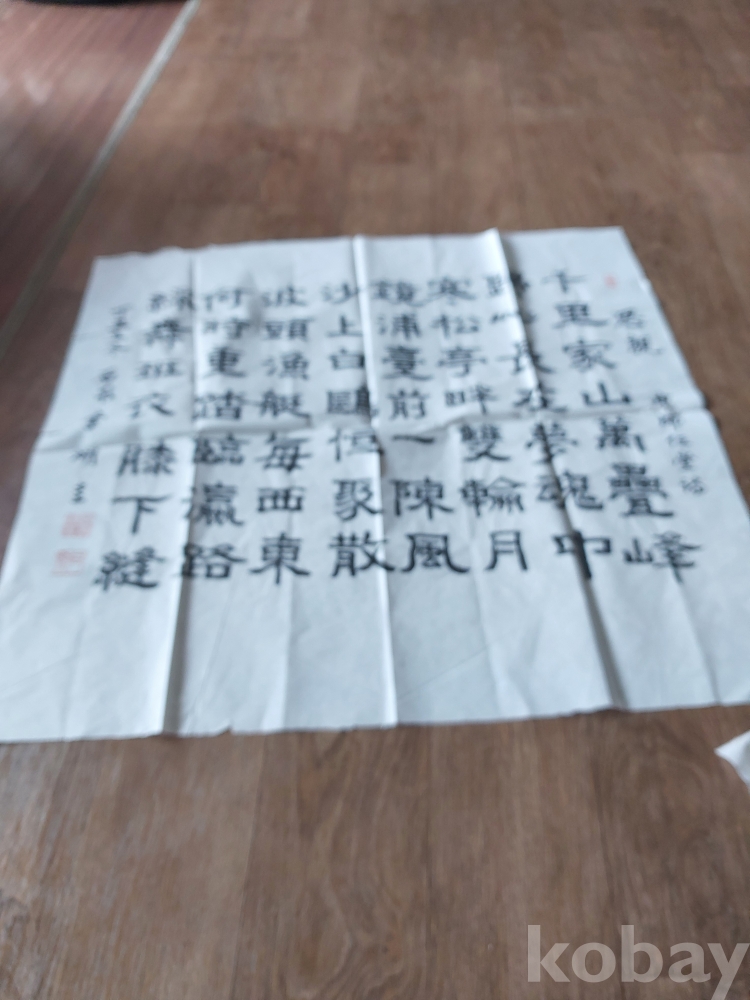 思親 申師任堂詩
千里家山萬疊峰
歸心長在夢魂中
寒松亭畔雙輪月
鏡浦臺前一陳風
沙上白鷗恒聚散
波頭漁艇每西東
何時重踏臨瀛路
綵舞班衣膝下縫
kobay